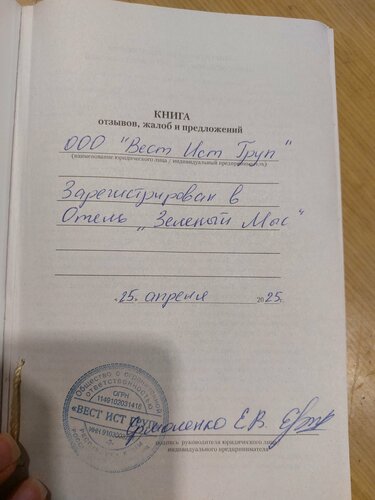 КНИГА
отзывов, жалоб и предложений
ООО "Вест Ист Груп"
(наименование юридического лица / индивидуальный предприниматель)
Зарегистрирован в
Отель „Зеленый Мыс“
„25„ апреля 2025г.
Общество с ограниченной
ответственностью
ОГРН
1149102031416
«ВЕСТ ИСТ ГРУП»
ИНН
Ермоленко Е.В.
подпись руководителя юридического лица
индивидуального предпринимателя